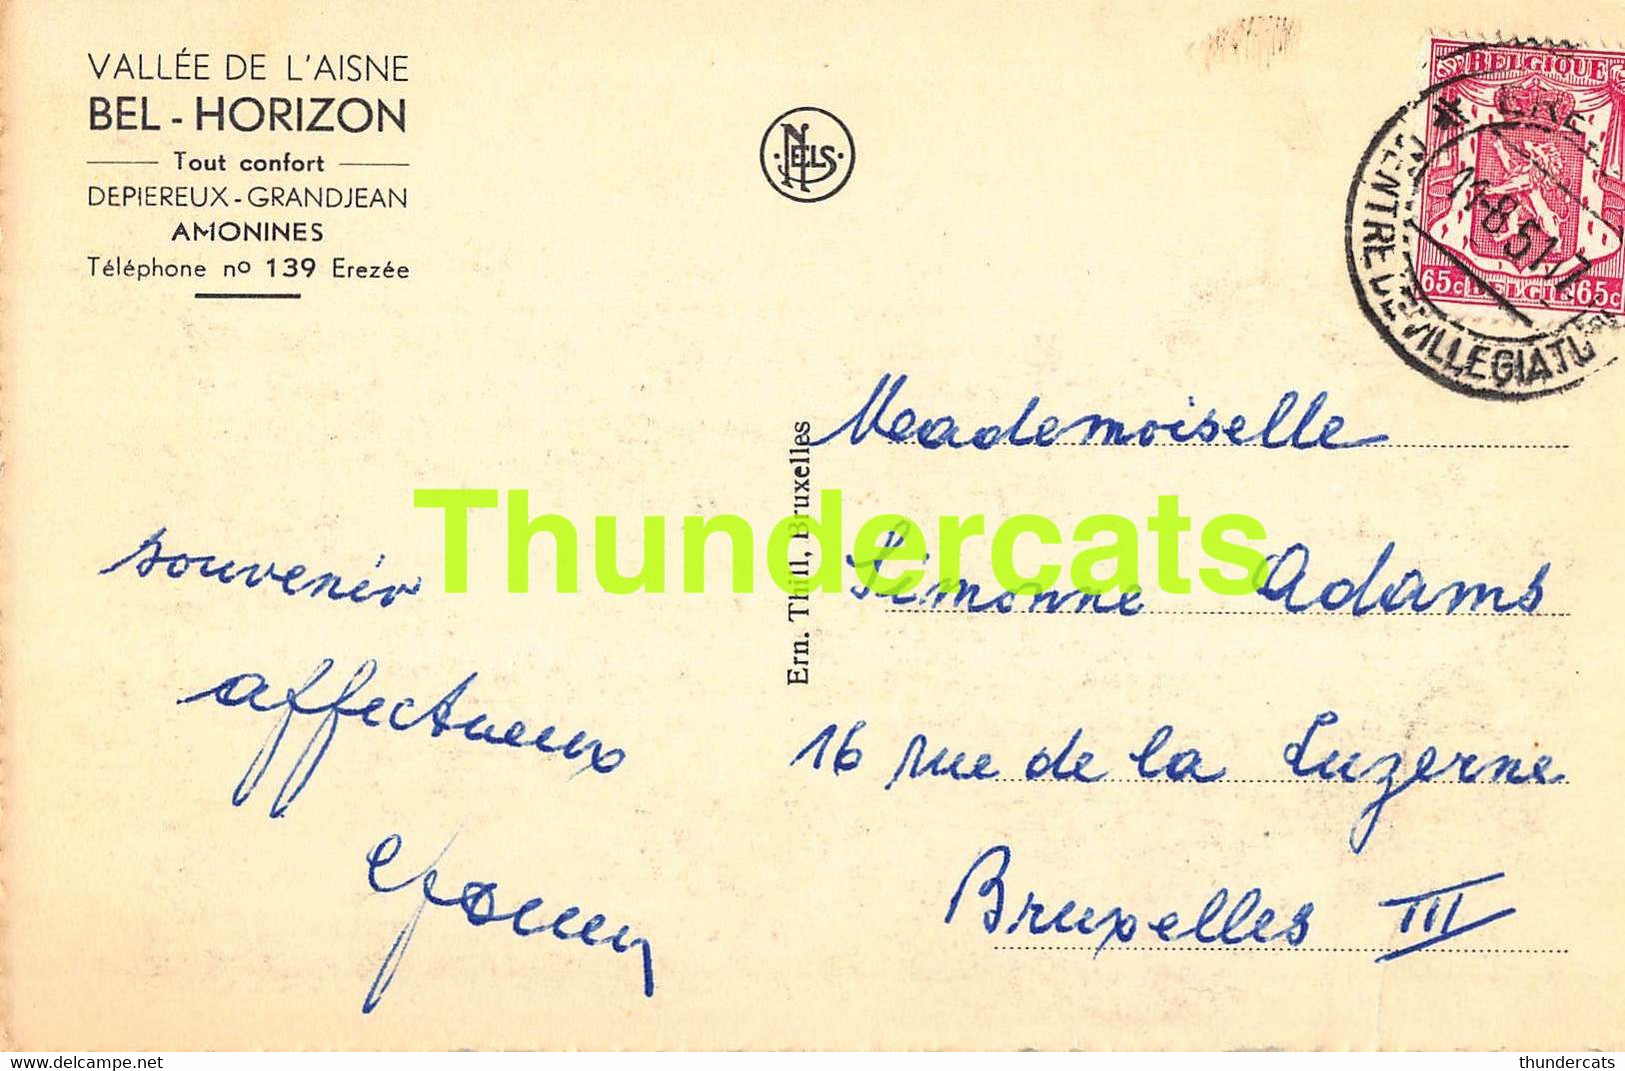 VALLÉE DE L'AISNE
BEL - HORIZON
Tout confort
DEPIEREUX - GRANDJEAN
AMONINES
Téléphone nº 139 Erezée
NELS
BELGIQUE
65c BELGIE 65c
* ERE
CENTRE DE VILLEGIATU
11-8.51
Ern. Thill, Bruxelles
Thundercats
Mademoiselle
Simonne Adams
16 rue de la Luzerne
Bruxelles III
souvenir
affectueux
delcampe.net
thundercats